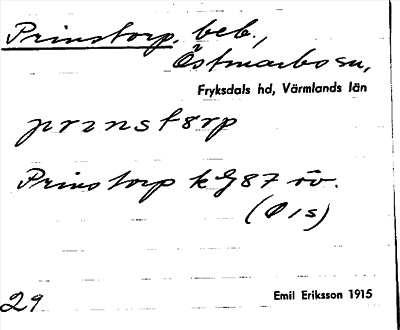 Prinstorp. beb.,
Östmarks sn,
Fryksdals hd, Värmlands län
prinstɷrp
Prinstorp kG87 öv.
(Ö1s)
29
Emil Eriksson 1915